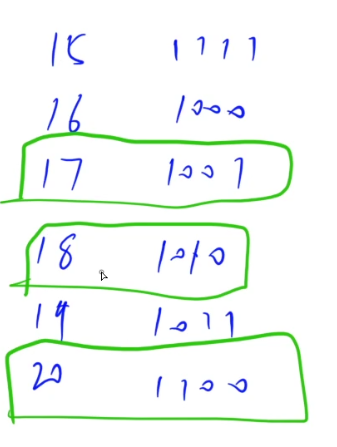 15 1111
16 1000
17 1001
18 1010
19 1011
20 1100